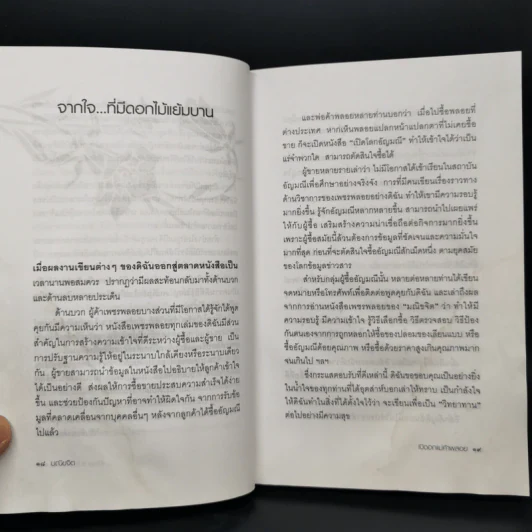 จากใจ...ที่มีดอกไม้แย้มบาน
เมื่อผลงานเขียนต่างๆ ของดิฉันออกสู่ตลาดหนังสือเป็น
เวลานานพอสมควร ปรากฏว่ามีผลสะท้อนกลับมาทั้งด้านบวก
และด้านลบหลายประเด็น
ด้านบวก ผู้ค้าเพชรพลอยบางส่วนที่มีโอกาสได้รู้จักได้พูด
คุยกันมีความเห็นว่า หนังสือเพชรพลอยทุกเล่มของดิฉันมีส่วน
สำคัญในการสร้างความเข้าใจที่ดีระหว่างผู้ซื้อและผู้ขาย เป็น
การปรับฐานความรู้ให้อยู่ในระนาบใกล้เคียงหรือระนาบเดียว
กัน ผู้ขายสามารถนำข้อมูลในหนังสือไปอธิบายให้ลูกค้าเข้าใจ
ได้เป็นอย่างดี ส่งผลให้การซื้อขายประสบความสำเร็จได้ง่าย
ขึ้น และช่วยป้องกันปัญหาที่อาจทำให้ผิดใจกัน จากการรับข้อ
มูลที่คลาดเคลื่อนจากบุคคลอื่นๆ หลังจากลูกค้าได้ซื้ออัญมณี
ไปแล้ว
๑๘ มณีชจิต
และพ่อค้าพลอยหลายท่านบอกว่า เมื่อไปซื้อพลอยที่
ต่างประเทศ หากเห็นพลอยแปลกหน้าแปลกตาที่ไม่เคยซื้อ
ขาย ก็จะเปิดหนังสือ "เปิดโลกอัญมณี" ทำให้เข้าใจได้ว่าเป็น
แร่จำพวกใด สามารถตัดสินใจซื้อได้
ผู้ขายหลายรายเล่าว่า ไม่มีโอกาสได้เข้าเรียนในสถาบัน
อัญมณีเพื่อศึกษาอย่างจริงจัง การที่มีคนเขียนเรื่องราวทาง
ด้านวิชาการของเพชรพลอยอย่างดิฉัน ทำให้เขามีความรอบรู้
มากยิ่งขึ้น รู้จักอัญมณีหลากหลายขึ้น สามารถนำไปเผยแพร่
ให้กับผู้ซื้อ เสริมสร้างความน่าเชื่อถือต่อกิจการมากยิ่งขึ้น
เพราะผู้ซื้อสมัยนี้ล้วนต้องการข้อมูลที่ชัดเจนและความมั่นใจ
มากที่สุด ก่อนที่จะตัดสินใจซื้ออัญมณีสักเม็ดหนึ่ง ตามยุคสมัย
ของโลกข้อมูลข่าวสาร
สำหรับกลุ่มผู้ซื้ออัญมณีนั้น หลายต่อหลายท่านได้เขียน
จดหมายหรือโทรศัพท์เพื่อติดต่อพูดคุยกับดิฉัน และเล่าถึงผล
จากการอ่านหนังสือเพชรพลอยของ "มณีชจิต" ว่า ทำให้มี
ความรอบรู้ มีความเข้าใจ รู้วิธีเลือกซื้อ วิธีตรวจสอบ วิธีป้อง
กันตนเองจากการถูกหลอกให้ซื้อของปลอมของเลียนแบบ หรือ
ซื้ออัญมณีด้อยคุณภาพ หรือซื้อด้วยราคาสูงเกินคุณภาพมาก
จนเกินไป ฯลฯ
ซึ่งกระแสตอบรับที่ดีเหล่านี้ ดิฉันขอขอบคุณเป็นอย่างยิ่ง
ในน้ำใจของทุกท่านที่ได้อุตส่าห์บอกเล่าให้ทราบ เป็นกำลังใจ
ให้ดิฉันทำในสิ่งที่ได้ตั้งใจไว้ว่า จะเขียนเพื่อเป็น "วิทยาทาน"
ต่อไปอย่างมีความสุข
๑๙